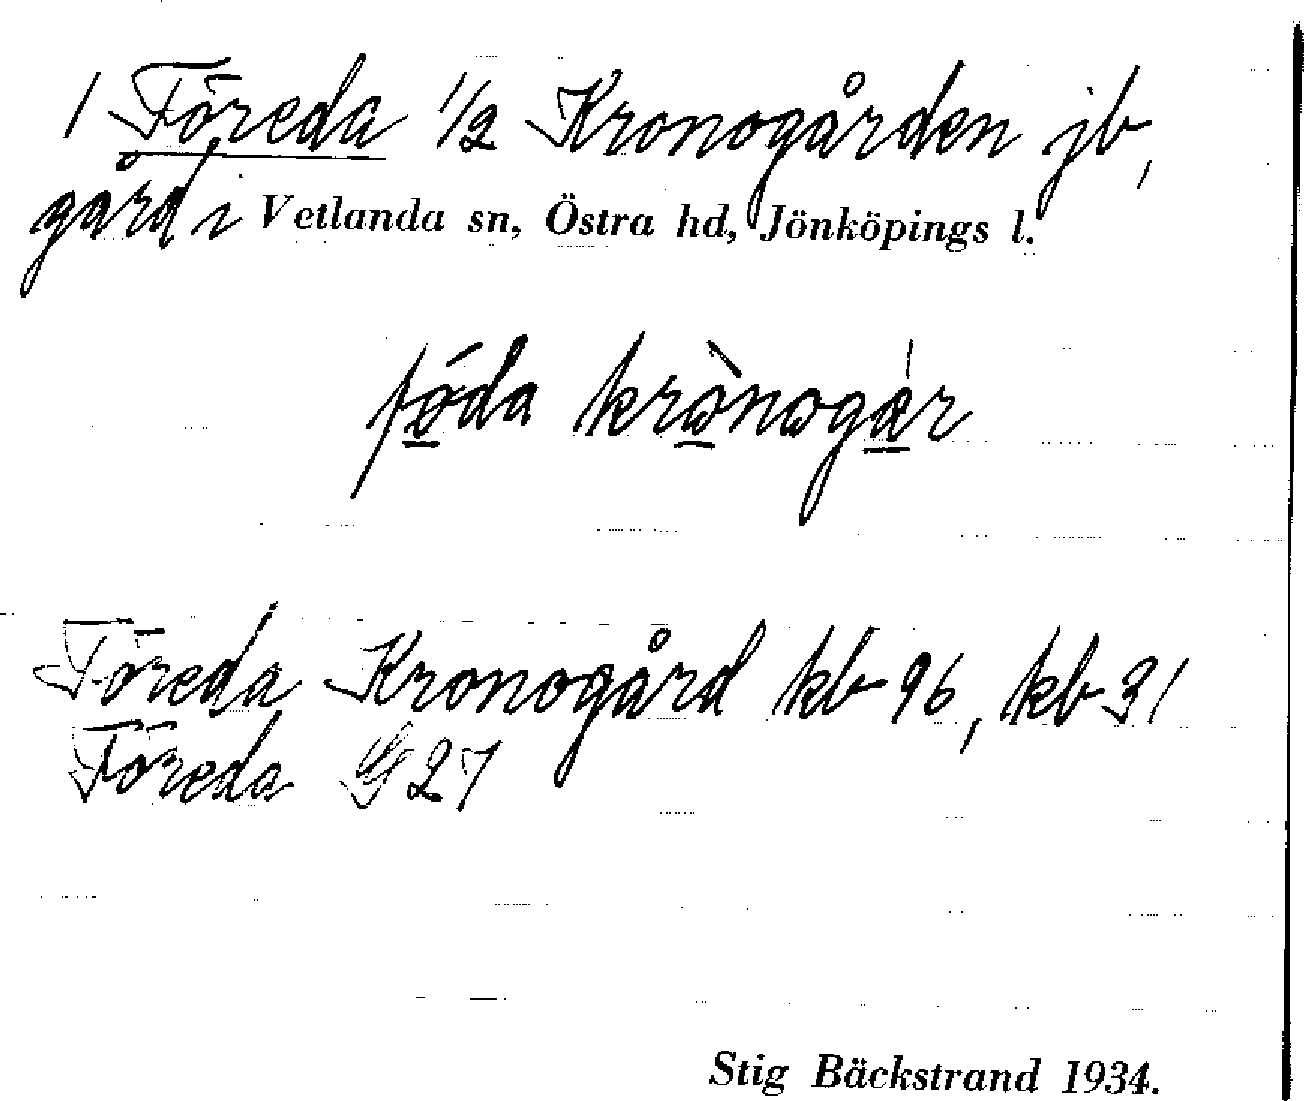 1 Föreda 1/2 Kronogården jb,
gård i Vetlanda sn, Östra hd, Jönköpings l.
fö́da krònogár
Föreda Kronogård kb 96, kb 31
Föreda G 27
Stig Bäckstrand 1934.